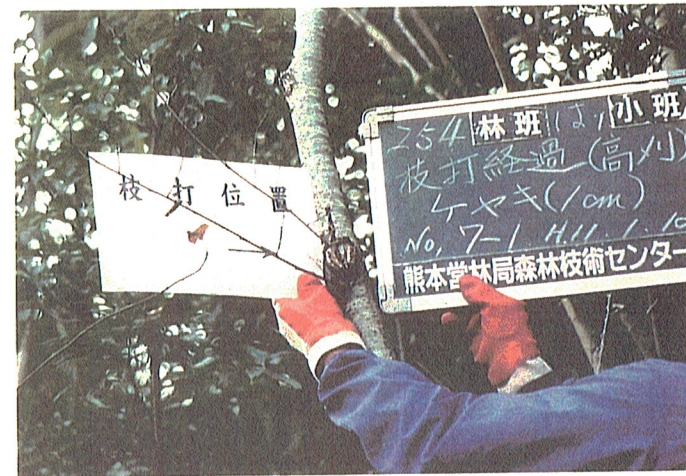 枝打位置
254林班は1小班
枝打経過(高刈)
ケヤキ(1cm)
No, 7-1 H.11.1.10
熊本営林局森林技術センター